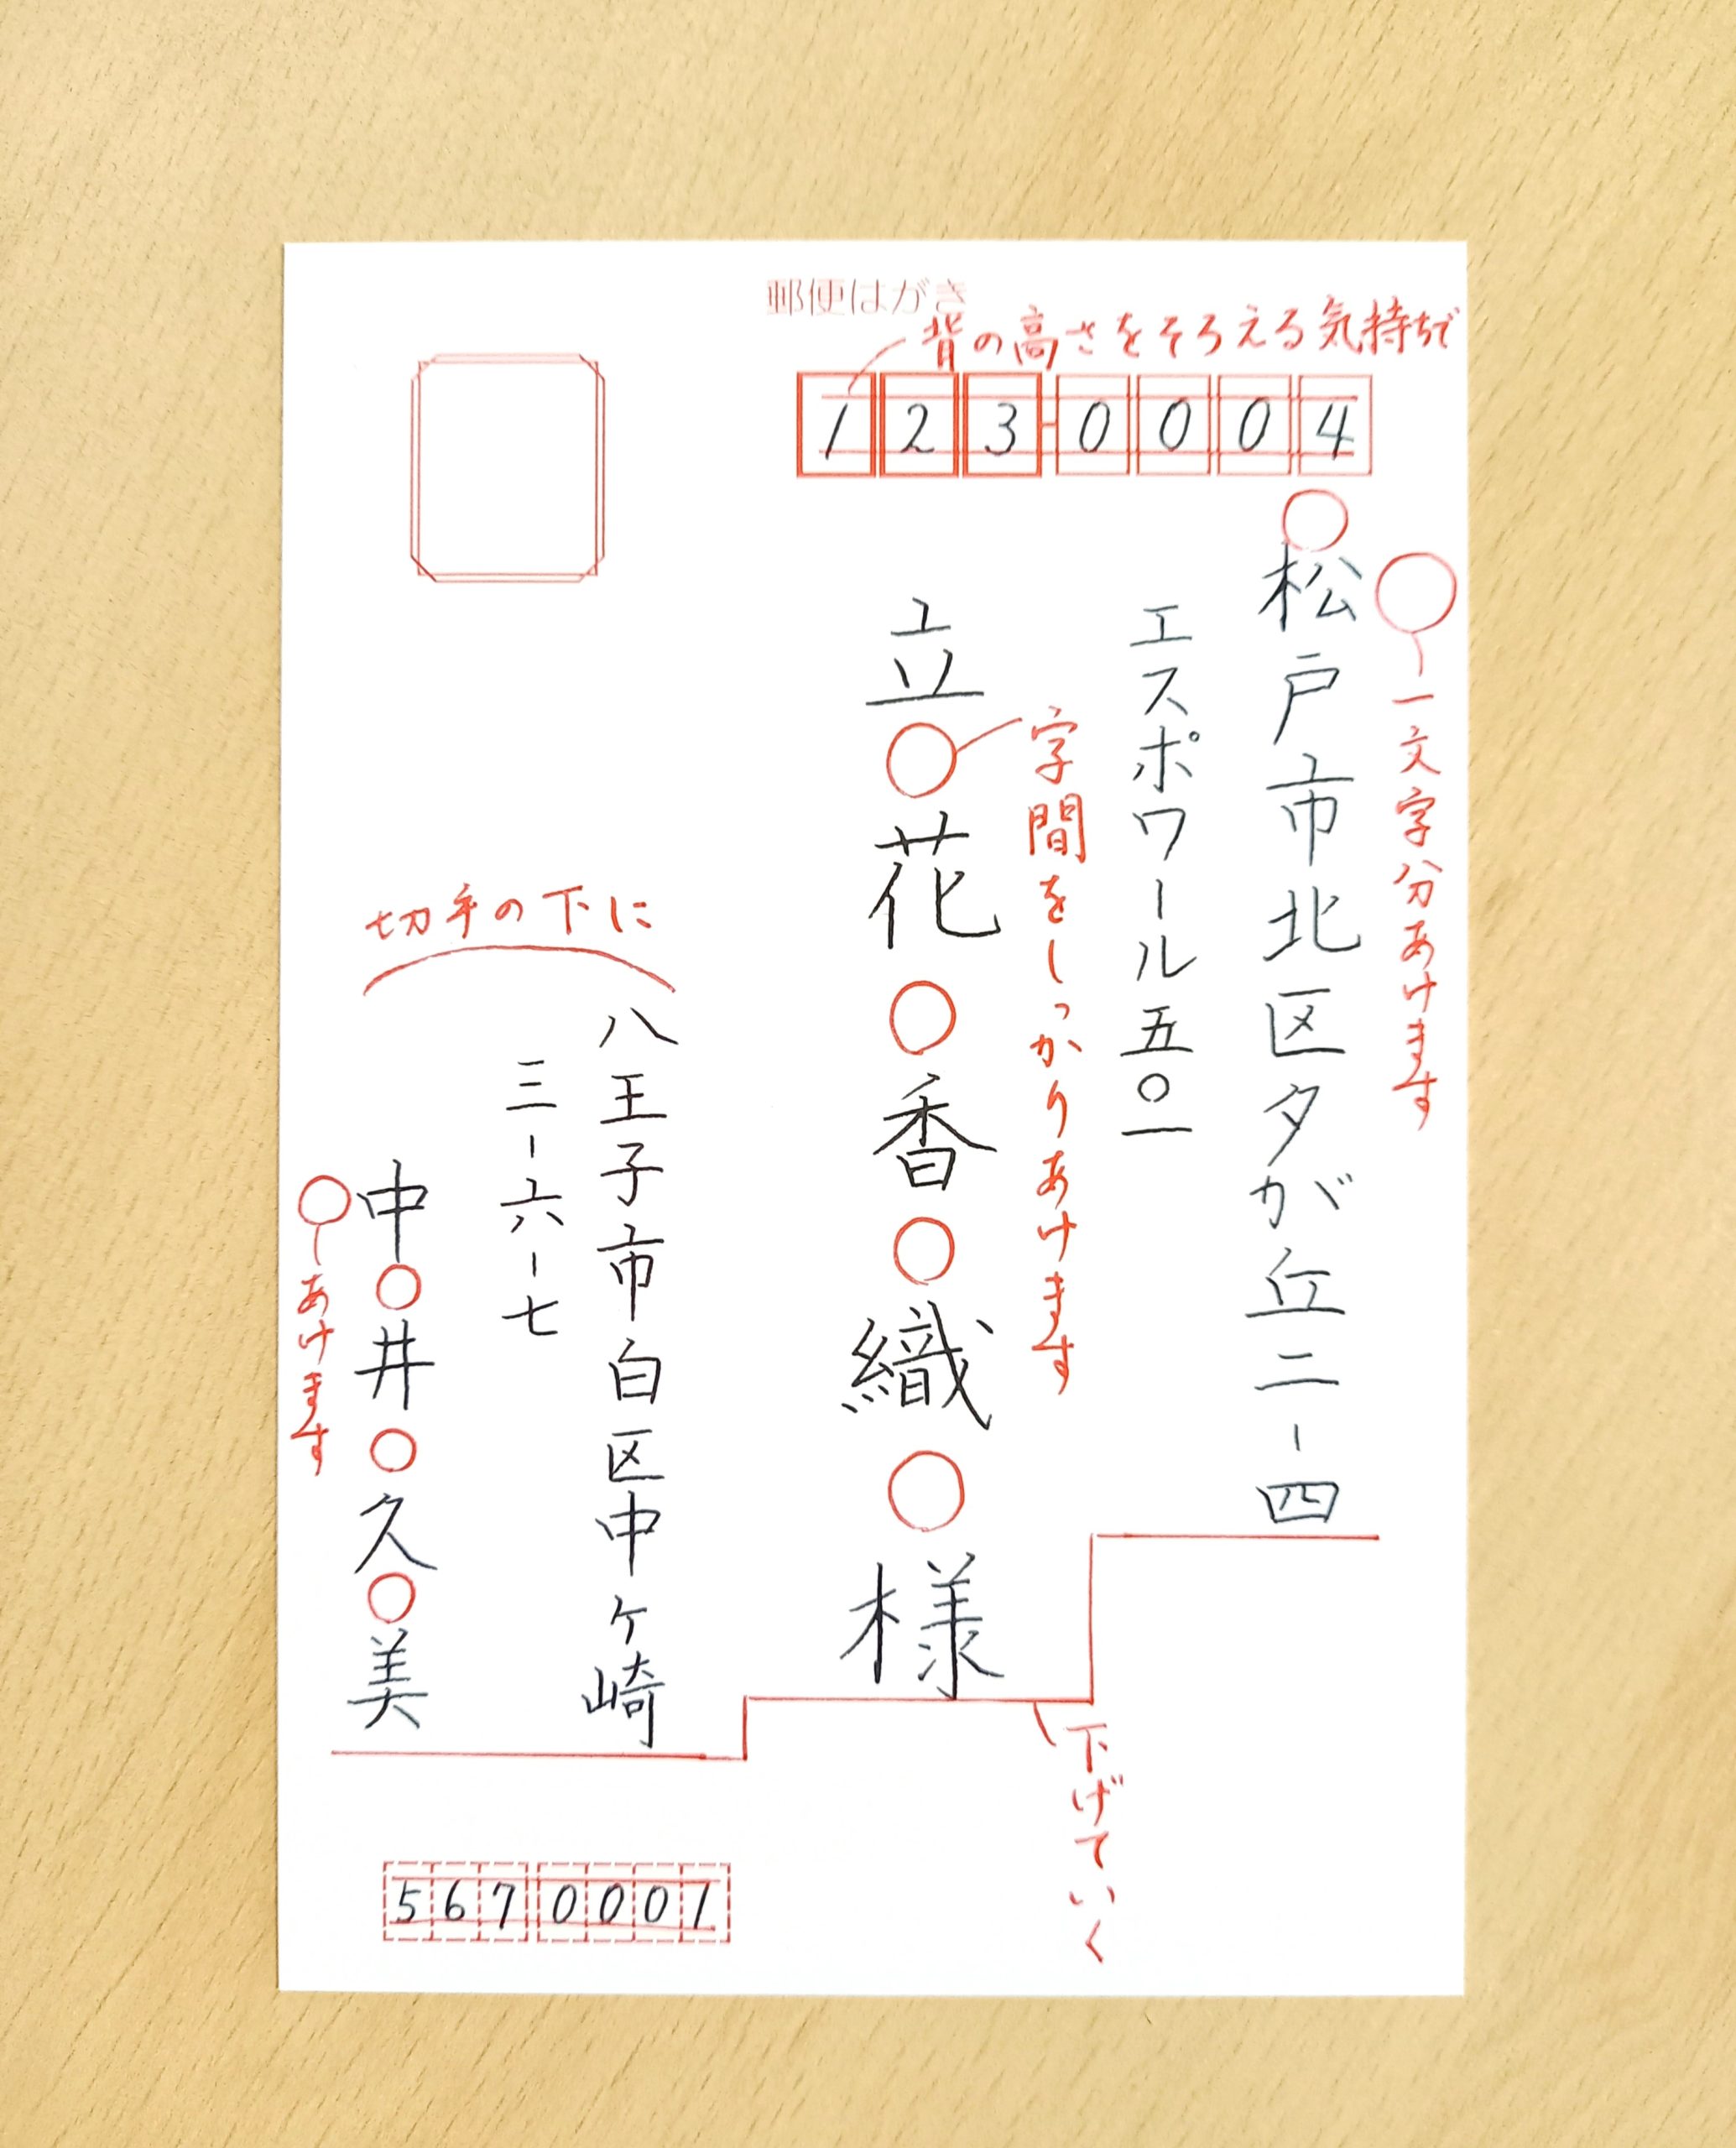 郵便はがき
背の高さをそろえる気持ちで
123-0004
一文字分あけます
松戸市北区夕が丘二-四
エスポワール五〇一
字間をしっかりあけます
立花香織様
下げていく
切手の下に
八王子市白区中ヶ崎
三-六-七
中井久美
あけます
5670001